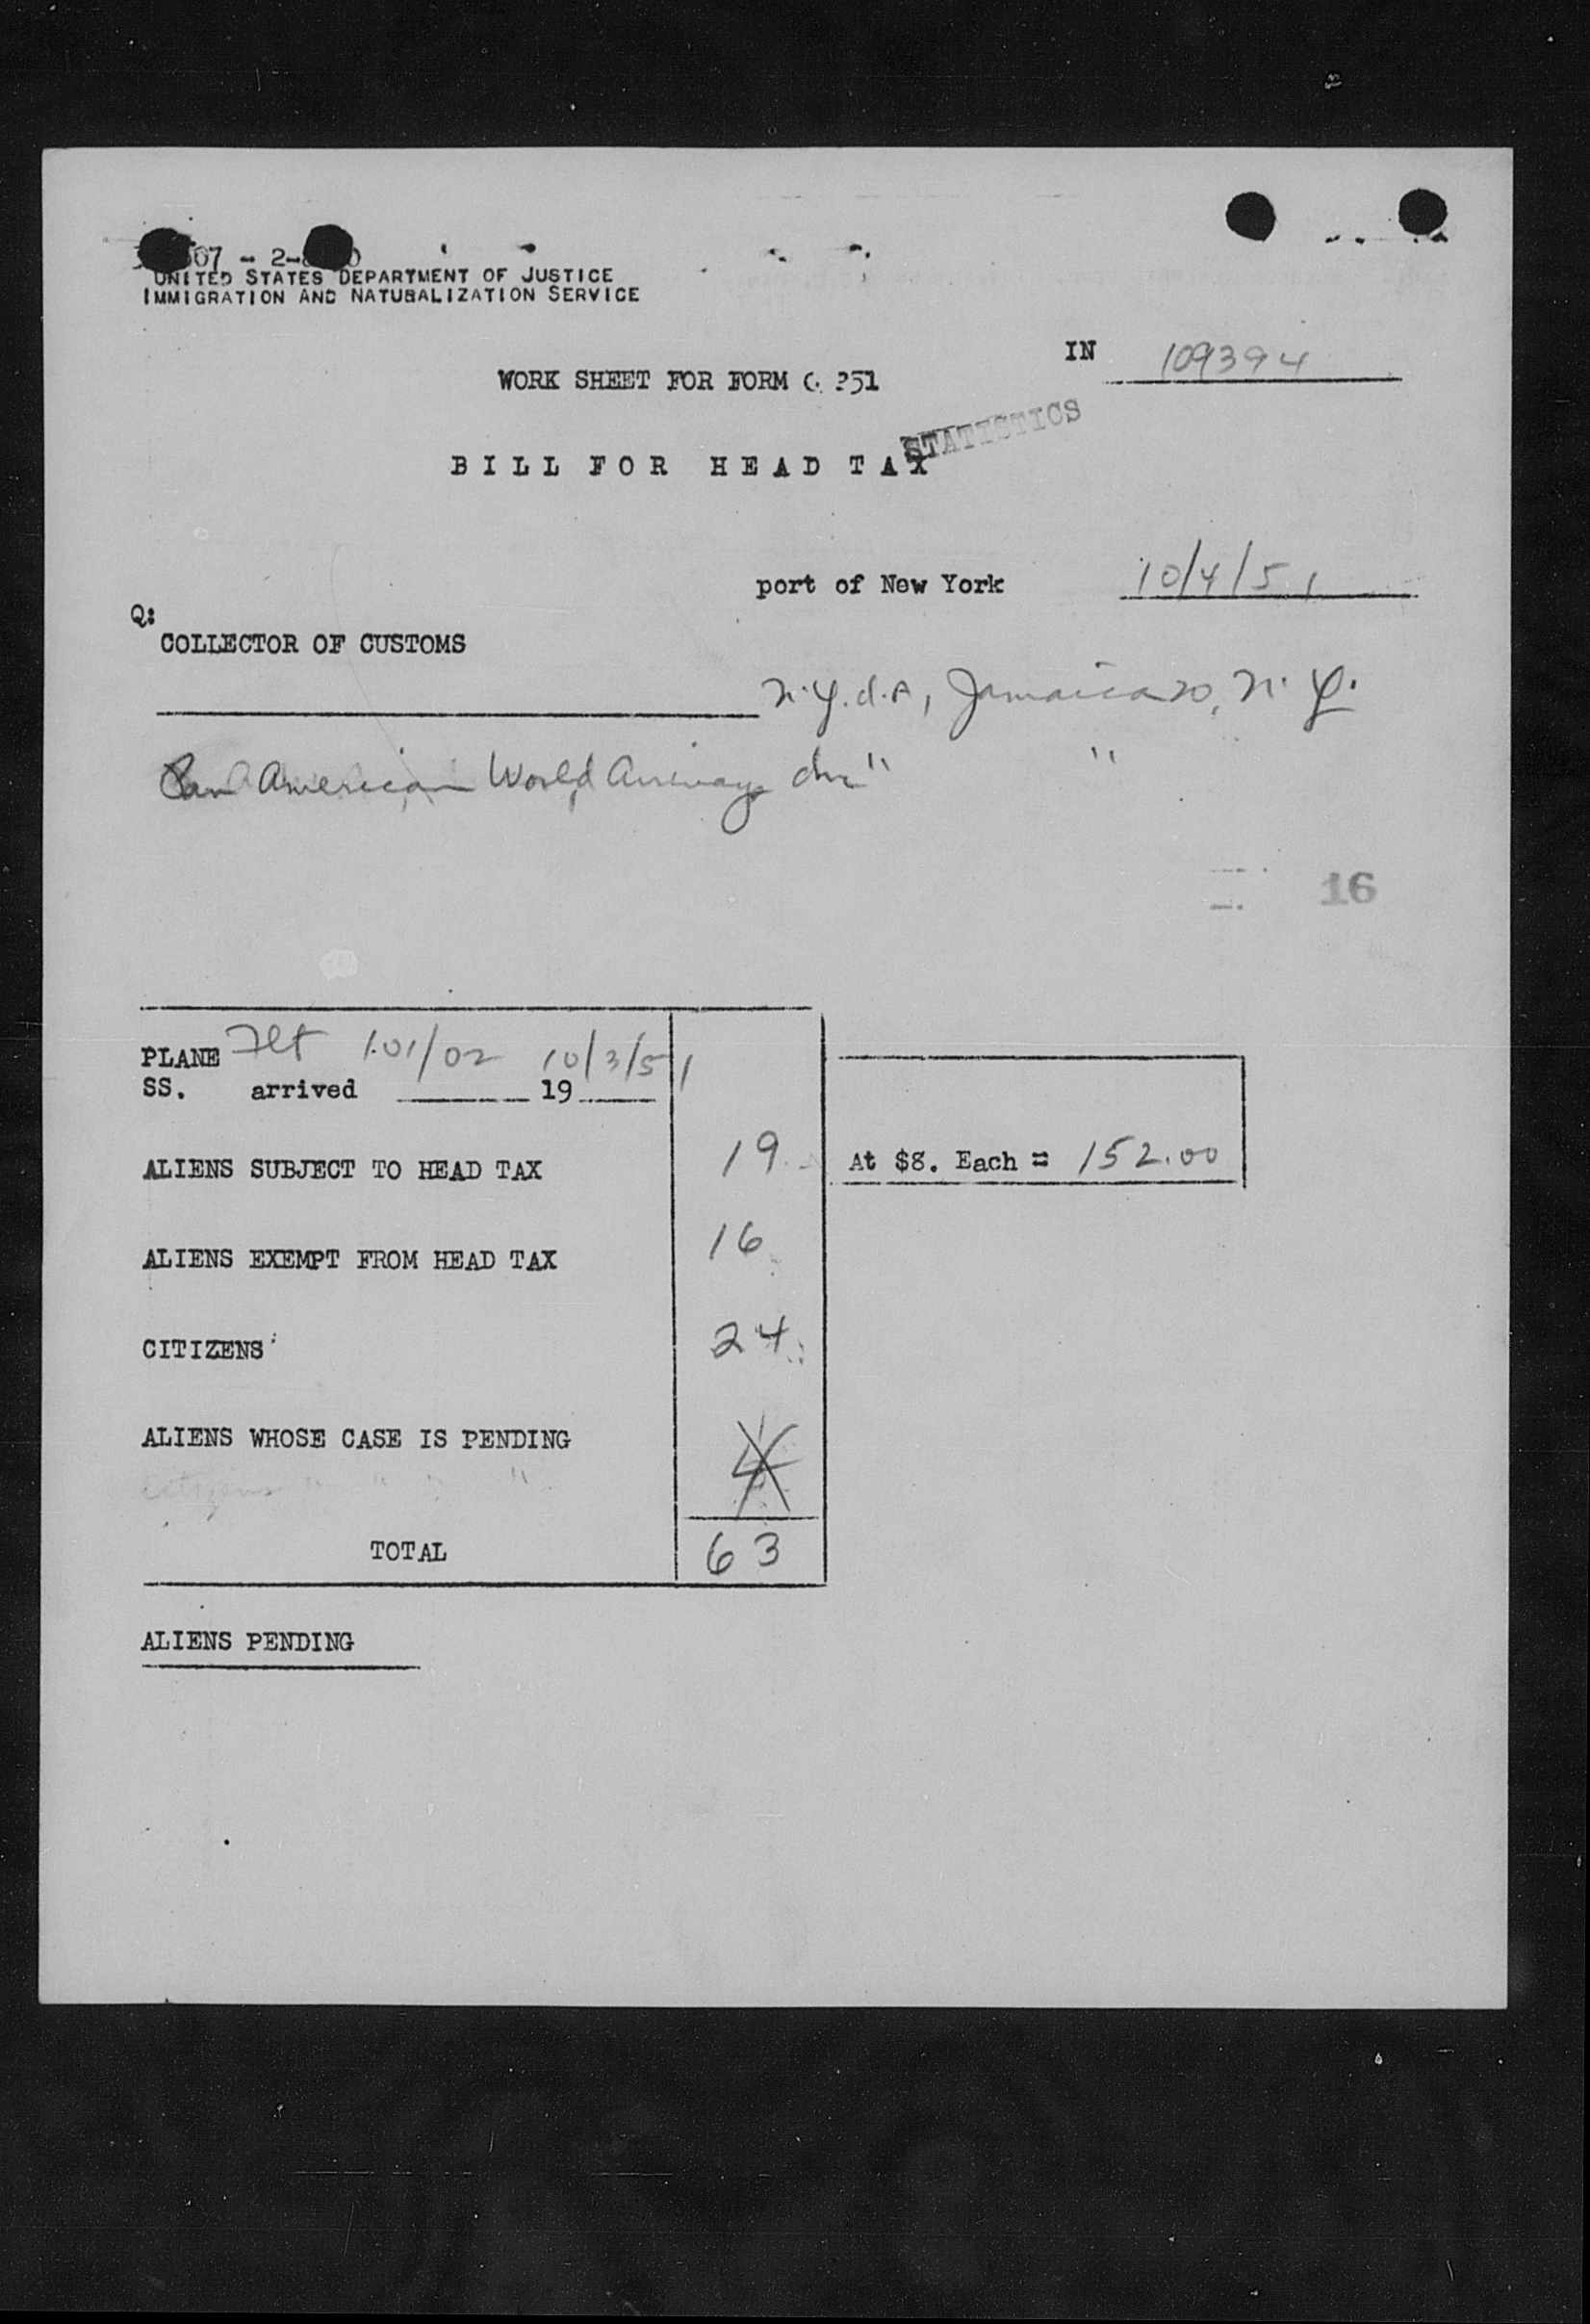 07 - 2-
UNITED STATES DEPARTMENT OF JUSTICE
IMMIGRATION AND NATURALIZATION SERVICE
IN 109394
WORK SHEET FOR FORM 251
STATISTICS
BILL FOR HEAD TAX
port of New York 10/4/51
Q:
COLLECTOR OF CUSTOMS
N.Y.I.A, Jamaica 20, N.Y.
Pan American World Airways Inc " "
16
PLANE Flt 101/02 10/3/51
SS. arrived 19
ALIENS SUBJECT TO HEAD TAX 19 At $8. Each = 152.00
ALIENS EXEMPT FROM HEAD TAX 16
CITIZENS 24
ALIENS WHOSE CASE IS PENDING 4
citizens " " " "
TOTAL 63
ALIENS PENDING